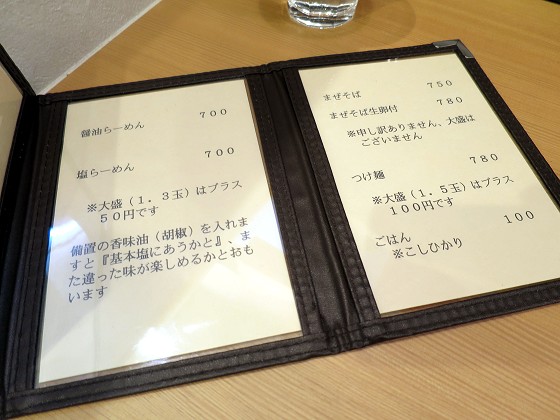 醤油らーめん　７００
塩らーめん　７００
※大盛（１．３玉）はプラス
５０円です
備置の香味油（胡椒）を入れま
すと『基本塩にあうかと』、ま
た違った味が楽しめるかとおも
います
まぜそば　７５０
まぜそば生卵付　７８０
※申し訳ありません、大盛は
ございません
つけ麺　７８０
※大盛（１．５玉）はプラス
１００円です
ごはん　１００
※こしひかり